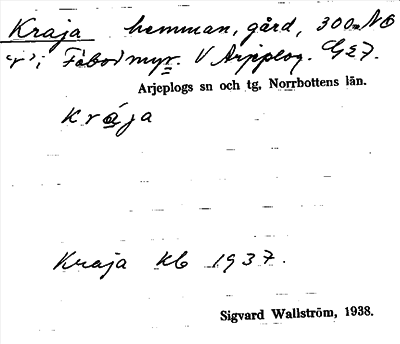 Kraja hemman, gård, 300 m NO
"r" i Fäbodmyr. V Arjeplog. G E 7.
Arjeplogs sn och tg, Norrbottens län.
Kråja
Kraja kb 1937.
Sigvard Wallström, 1938.